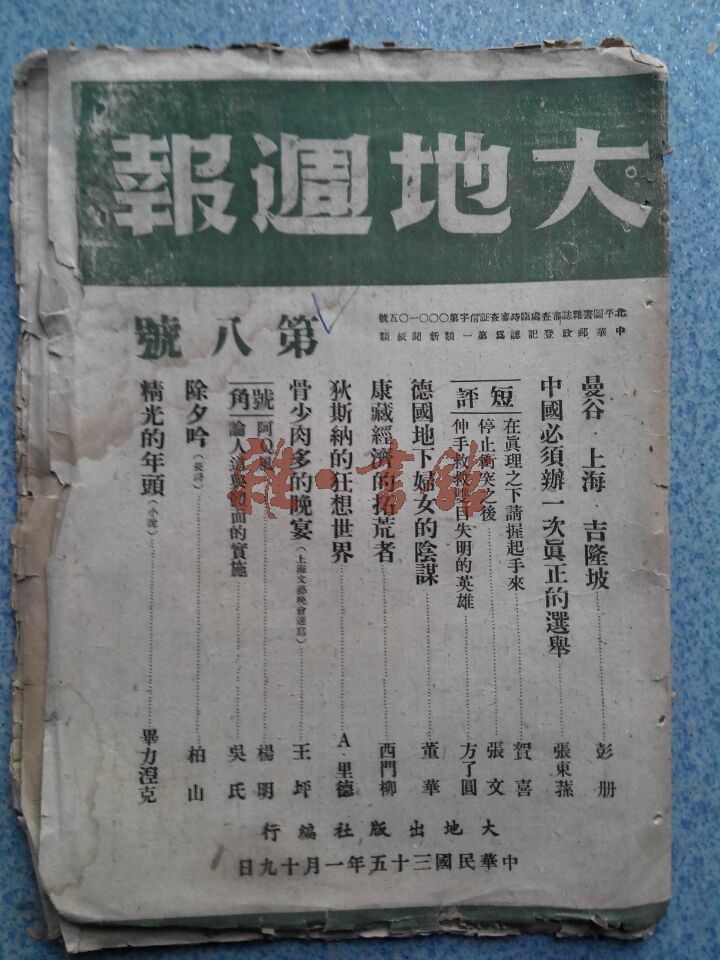 大地週報
北平圖書雜誌審查處臨時審查証信字第〇〇〇一〇五號
中華郵政登記認爲第一類新聞紙類
第八號
曼谷·上海·吉隆坡……彭册
中國必須辦一次眞正的選舉……張東蓀
短評
在眞理之下請握起手來……賀喜
停止衝突之後……張文
伸手救救雙目失明的英雄……方了圓
德國地下婦女的陰謀……董華
康藏經濟的拓荒者……西門柳
狄斯納的狂想世界……A·里德
骨少肉多的晚宴（上海文藝晚會速寫）……王坪
號角
阿Q……楊明
論人道與面的實施……吳氏
除夕吟（長詩）……柏山
精光的年頭（小說）……畢力澄克
大地出版社編行
中華民國三十五年一月十九日
雜·書館